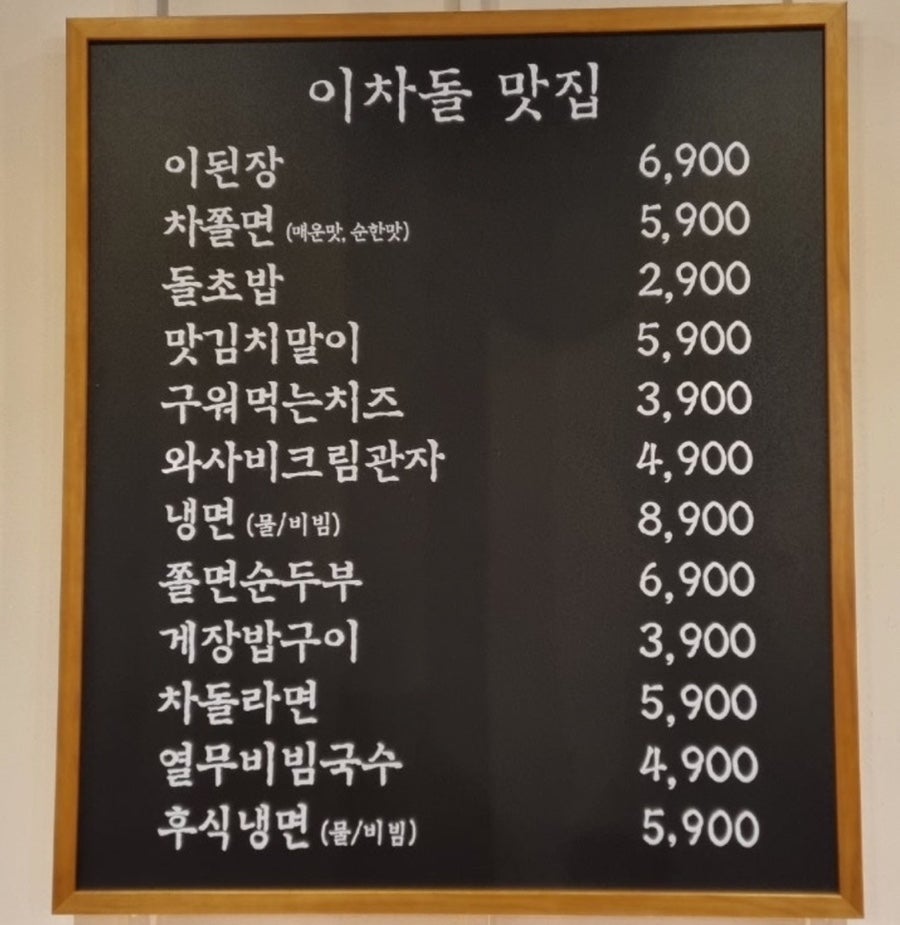 이차돌 맛집
이된장 6,900
차쫄면 (매운맛, 순한맛) 5,900
돌초밥 2,900
맛김치말이 5,900
구워먹는치즈 3,900
와사비크림관자 4,900
냉면 (물/비빔) 8,900
쫄면순두부 6,900
게장밥구이 3,900
차돌라면 5,900
열무비빔국수 4,900
후식냉면 (물/비빔) 5,900